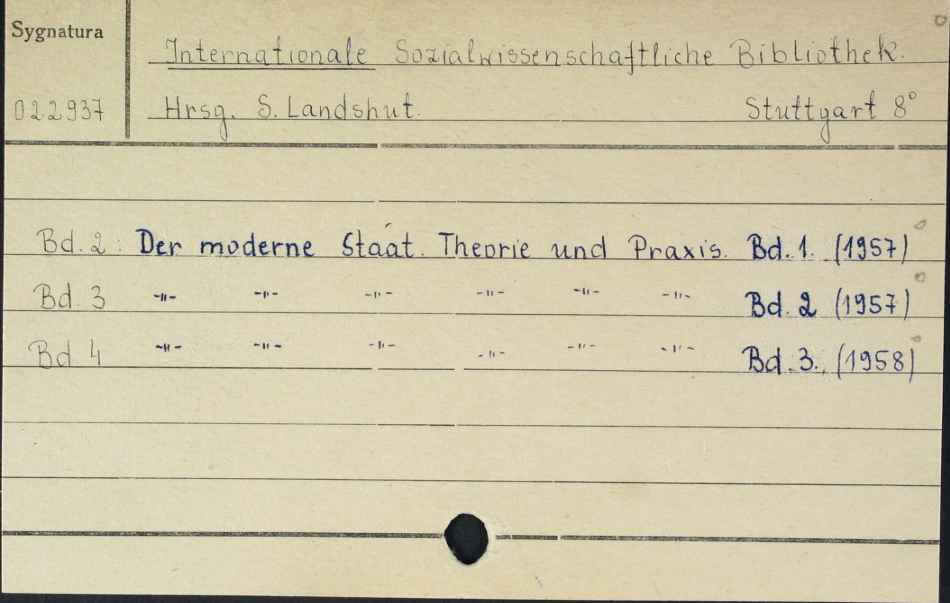 Sygnatura
Internationale Sozialwissenschaftliche Bibliothek.
022937 Hrsg. S. Landshut. Stuttgart 8°
Bd. 2: Der moderne Staat. Theorie und Praxis. Bd. 1. (1957)
Bd. 3 -"- -"- -"- -"- -"- -"- Bd. 2 (1957)
Bd. 4 -"- -"- -"- -"- -"- -"- Bd. 3. (1958)